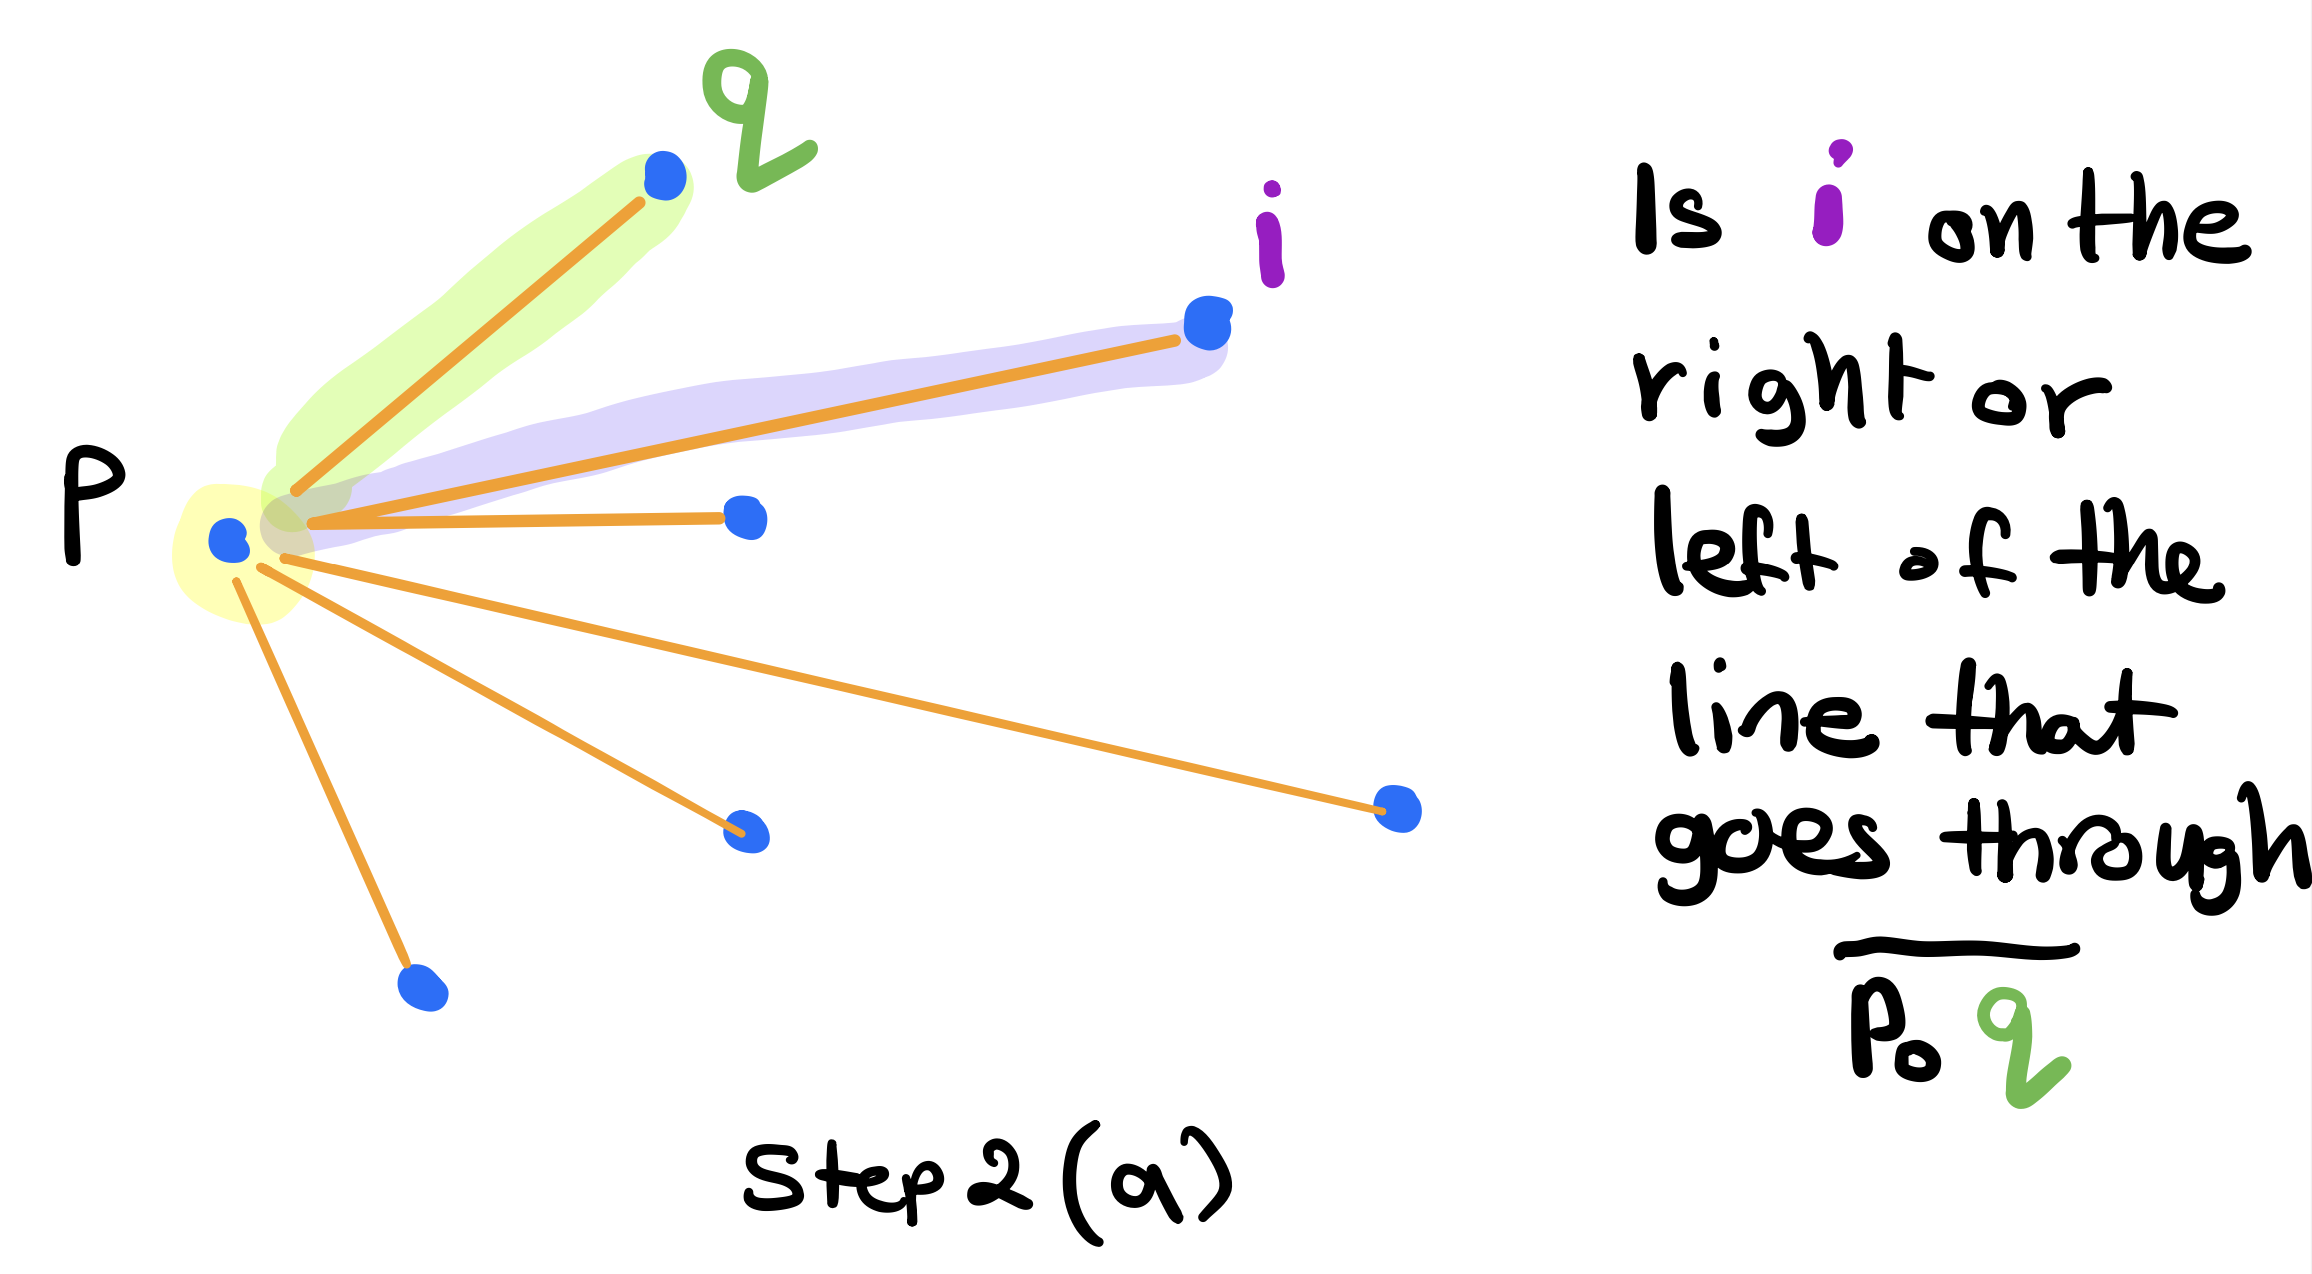 q
i
P
Is i on the
right or
left of the
line that
goes through
P₀ q
Step 2 (a)